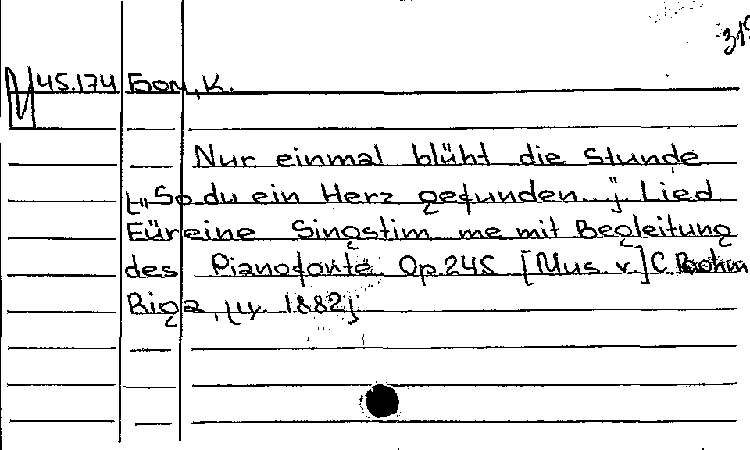 319
45.174 Бом, К.
Nur einmal blüht die Stunde
[„So du ein Herz gefunden..."] Lied
Für eine Singstim me mit Begleitung
des Pianoforte. Op. 245 [Mus. v.] C. Bohm
Riga, [ц. 1882].